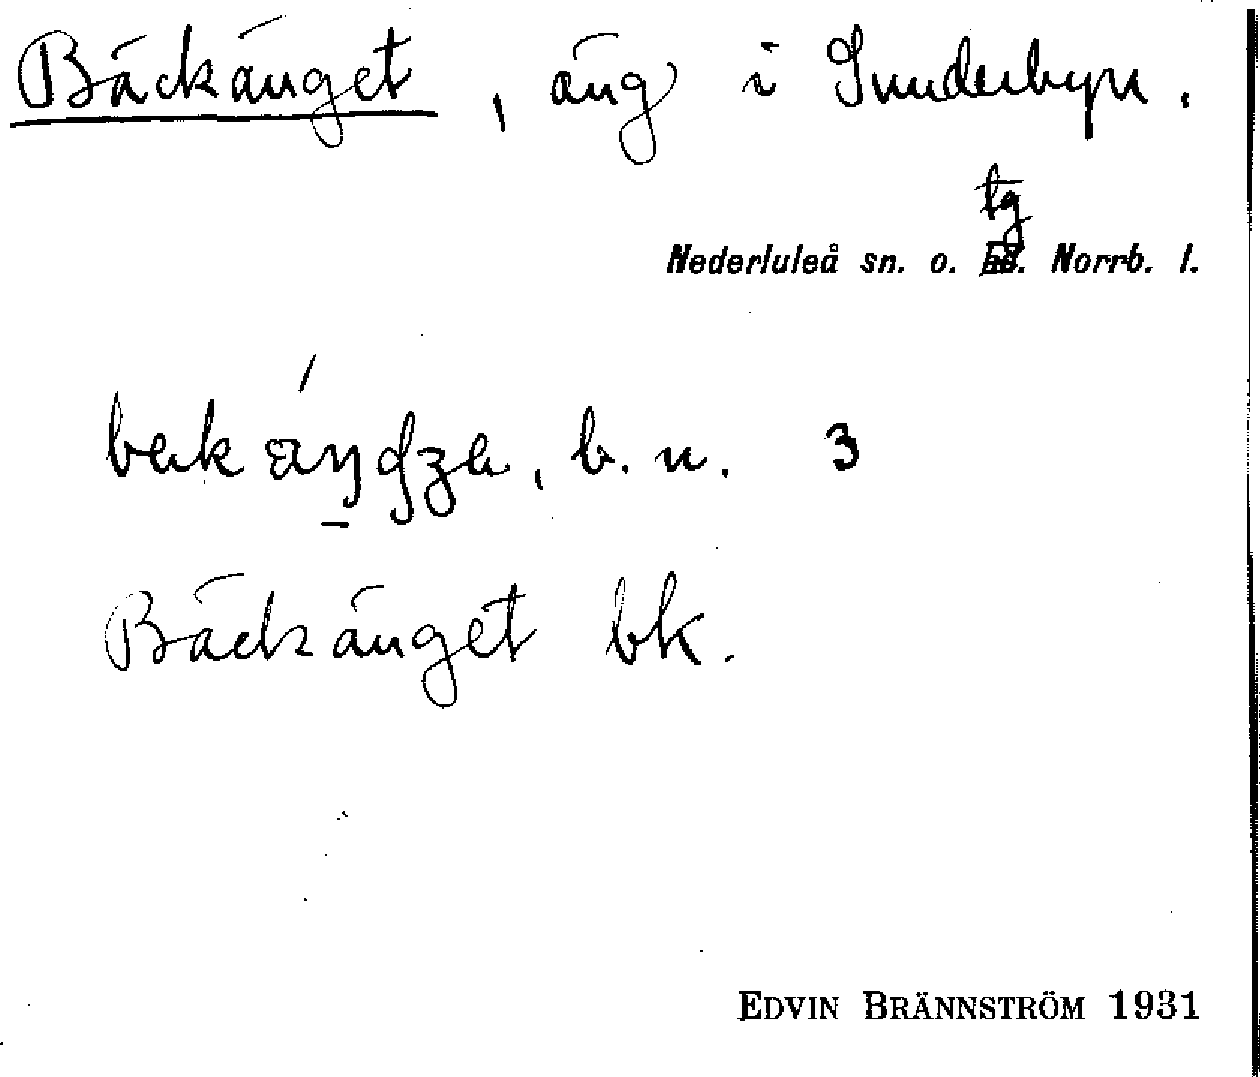 Bäckänget, äng i Sunderbyn.
tg
Nederluleå sn. o. Norrb. l.
b. n. 3
Bäckänget bk.
EDVIN BRÄNNSTRÖM 1931